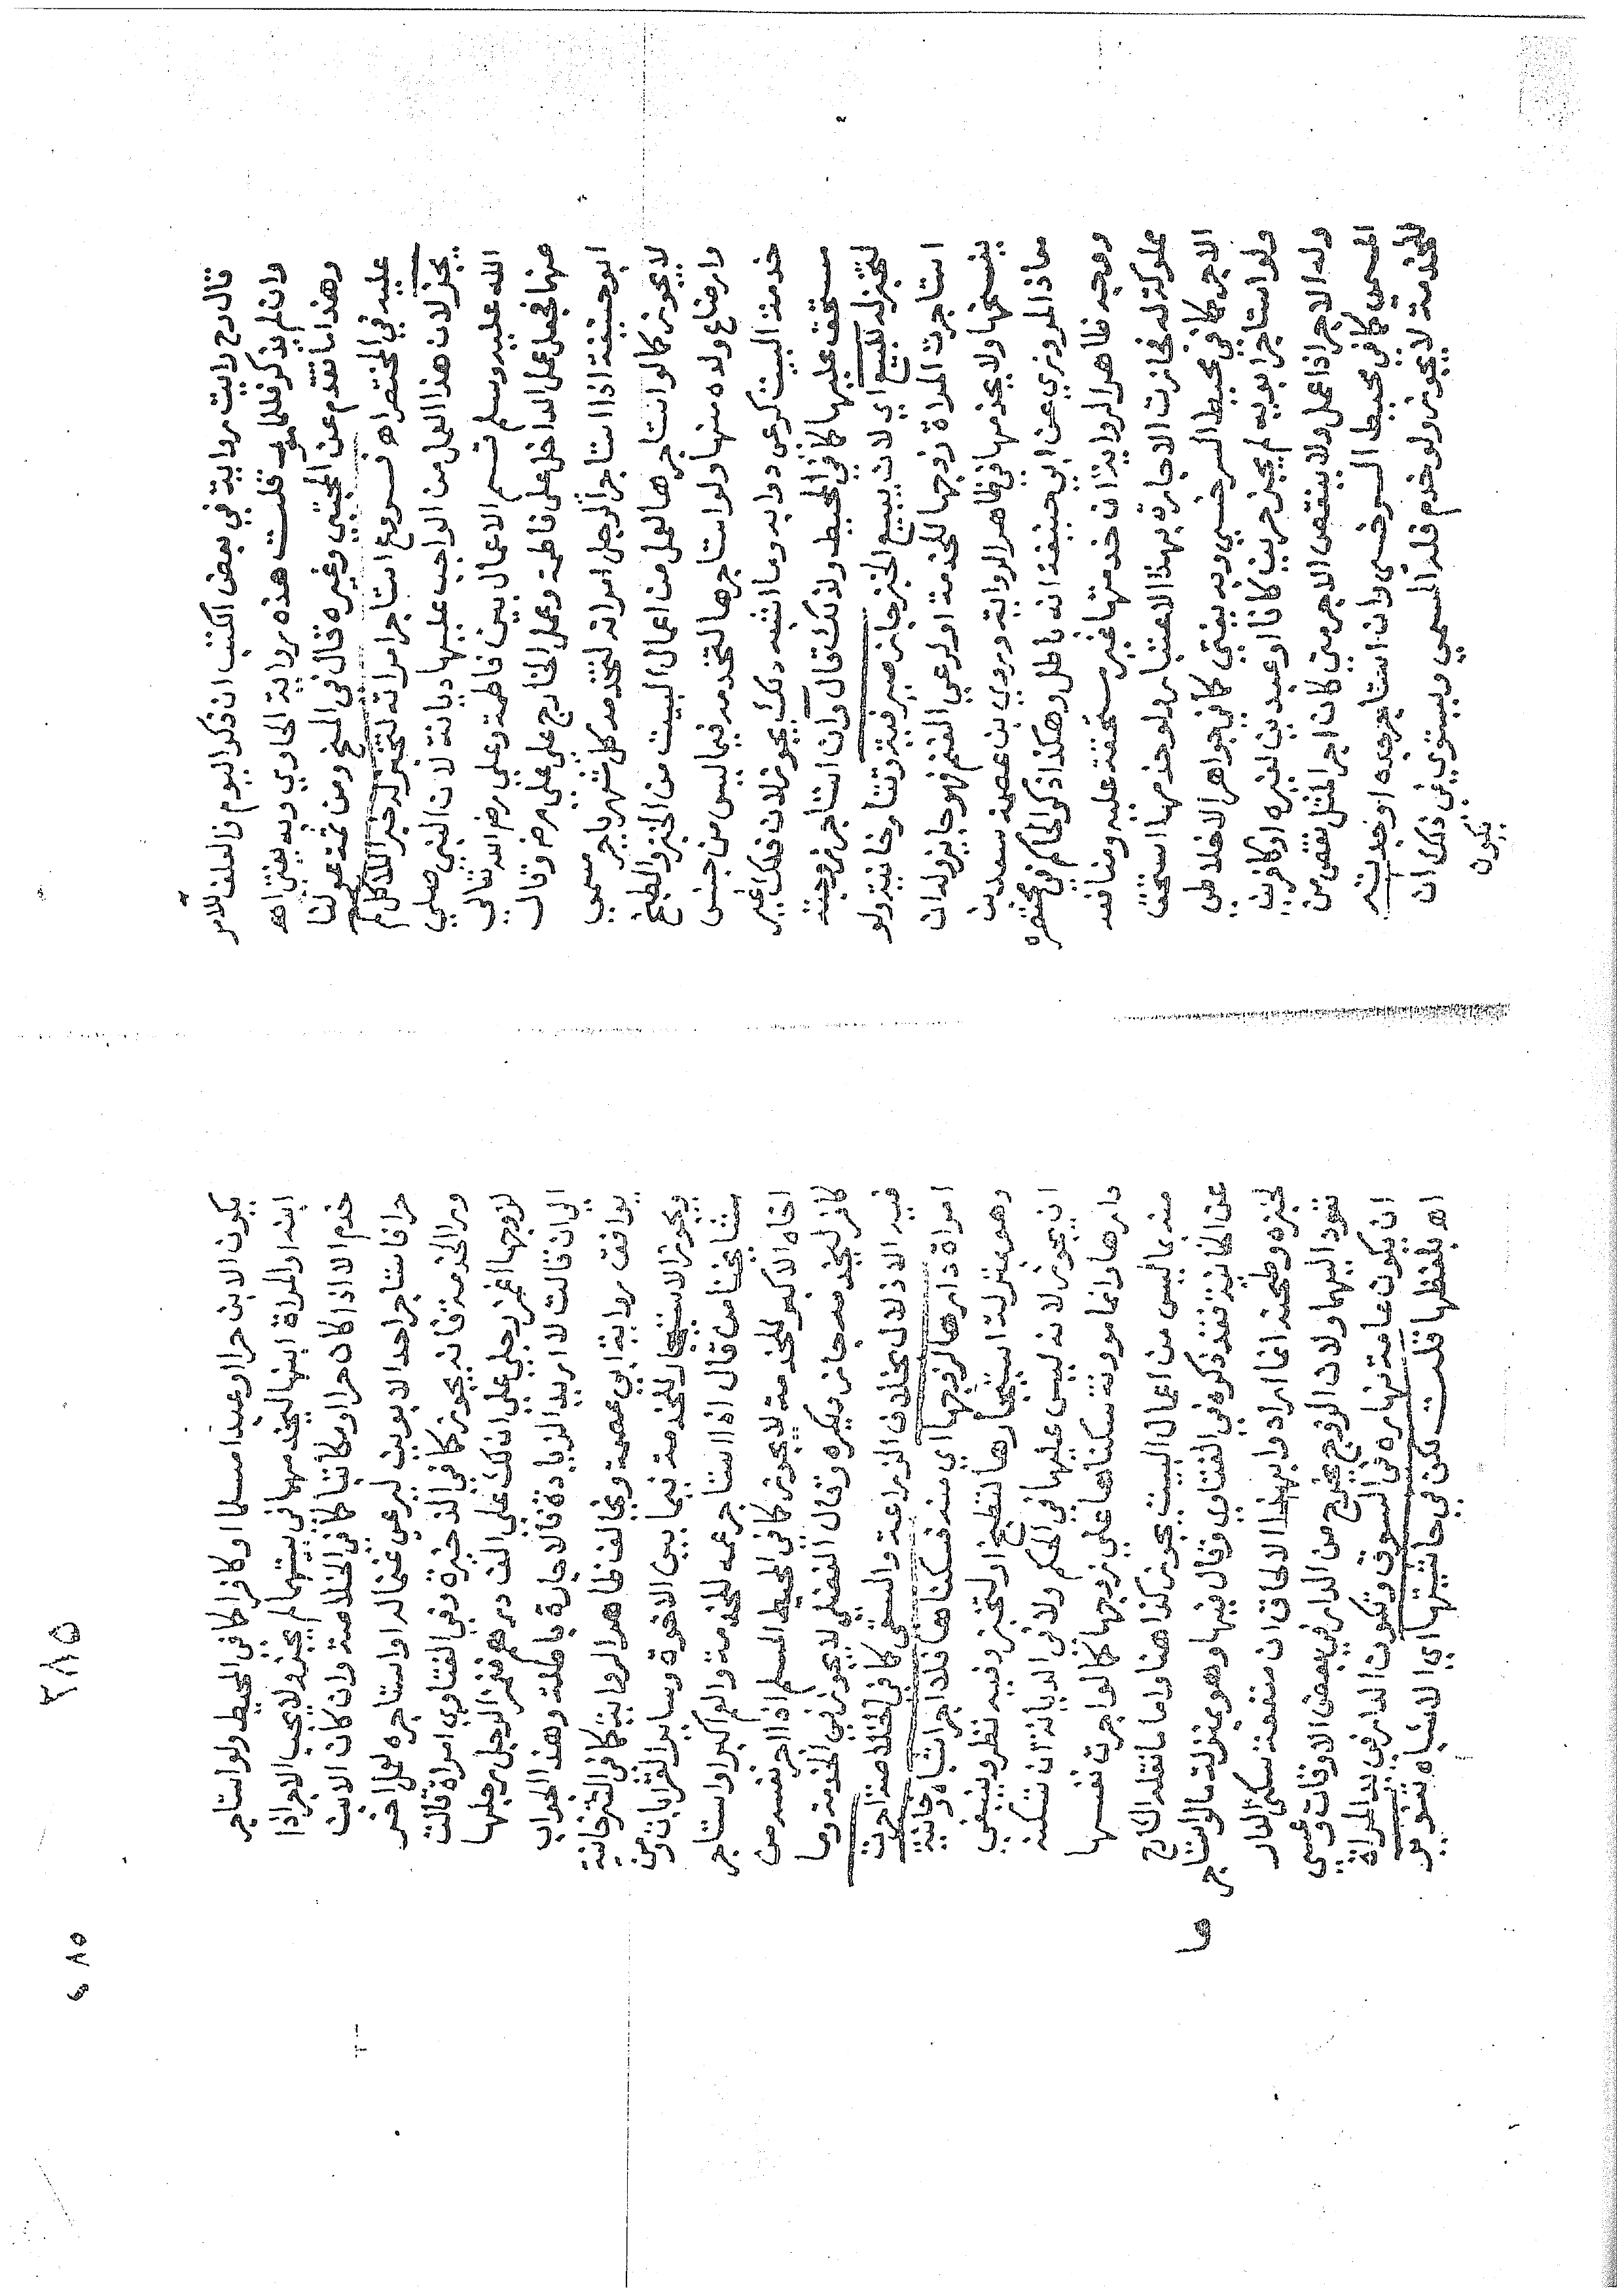 قال رح رايت رواية في بعض الكتب ان ذكر اليوم والعلف للامر
وان لم يذكر فللمامور قلت هذه رواية الحاوي وبه يفتى اه
وهذا ما تقدم عن المجتبى وغيره قال في المنح ومن ثمة عولنا
عليه في المختصر اه فروع استاجر امراته لتخبز له خبزا للاكل لم
يجز لان هذا العمل من الواجب عليها ديانة لان النبي صلى
الله عليه وسلم قسم الاعمال بين فاطمة وعلي رضي الله تعالى
عنهما فجعل عمل الداخل على فاطمة وعمل الخارج على علي رض وقال
ابو حنيفة اذا استاجر الرجل امراته لتخدمه كل شهر باجر مسمى
لا يجوز كما لو استاجرها لعمل من اعمال البيت من الخبز والطبخ
وارضاع ولده منها ولو استاجرها لتخدمه فيما ليس من جنس
خدمة البيت كرعي دوابه وما اشبه ذلك يجوز لان ذلك غير
مستحق عليها كما في المحيط ولذلك قال وان استاجر زوجته
لتخبز له للبيع اي لان يبيع الخبز جاز صيرفية وتتارخانية ولو
استاجرت المراة زوجها للخدمة او لرعي الغنم فهو جايز وله ان
يفسخها ولا يخدمها في ظاهر الرواية وروى بن عصمة سعد بن
معاذ المروزي عن ابي حنيفة انه باطل وهكذا ذكر الحاكم في مختصره
ووجه ظاهر الرواية ان خدمتها غير مستحقة عليه ومنافعه
مملوكة له فجازت الاجارة بهذا الاعتبار ولو خدمها استحق
الاجر كما في محيط السرخسي وبه يفتى كما في جواهر الاخلاطي
ولو استاجر ابويه لم يجز حرين كانا او عبدين لغيره او كافرين
وله الاجر اذا عمل ولا ينقص الاجر متى كان اجر المثل نقص من
المسمى كما في محيط السرخسي وان استاجر جده او جدته
للخدمة لا يجوز ولو خدم فله المسمى ويستوي في ذلك ان
يكون
٢٨٥
يكون الابن حرا او عبدا مسلما او كافرا كما في المحيط ولو استاجر
ابنه او المراة ابنها ليخدمها في بيتهما لم يجز ولا يجب الاجر اذا
خدم الا اذا كان حرا او مكاتبا كما في الخلاصة وان كان الابن
حرا فاستاجر احد الابوين ليرعى غنما له او استاجره لعمل اخر
ورا الخدمة فانه يجوز كما في الذخيرة وفي الفتاوي امراة قالت
لزوجها اغمز رجلي على ان لك علي الف درهم فغمز الرجل رجلها
الى ان قالت لا اريد الزيادة فالاجارة باطلة وهذا الجواب
يوافق رواية ابي عصمة ويخالف ظاهر الرواية كما في التتارخانية
ويجوز الاستيجار للخدمة فيما بين الاخوة وساير القرابات ومن
مشايخنا من قال اذا استاجر عمه للخدمة والعم اكبر او استاجر
اخاه الاكبر للخدمة لا يجوز كما في المحيط المسلم اذا اجر نفسه من
كافر ليخدمه جاز ويكره وقال الفضلي لا يجوز في الخدمة وما
فيه الاذلال بخلاف الزراعة والسقي كما في الخلاصة اجرت
امراة دارها لزوجها اي منه فسكناها فلا اجر اشباه وخانية
وهو بمنزلة استيجارها لتطبخ او لتخبز وفيه نظر وينبغي
ان يجوز لانه ليس عليها في الحكم ولا في الديانة ان تسكنه
دارها وانما مؤونة سكناها على زوجها كما لو اجرت نفسها
منه بما ليس من اعمال البيت يجوز كذا هنا واما ما نقله الشارح
عن الخانية فقد ذكره في الفتاوي وقال فيها وهو بمنزلة ما لو استاجر
لخبزه وطبخه انما اراد بهذا الالحاق ان منفعة سكنى الدار
تعود اليهما ولان الزوج يخرج من الدار في بعض الاوقات وعسى
ان يكون عامة نهاره في السوق وتكون الدار في يد المراة
اه بلفظها قلت لكن في حاشيتها اي الاشباه تنوير
و
٥٨٥